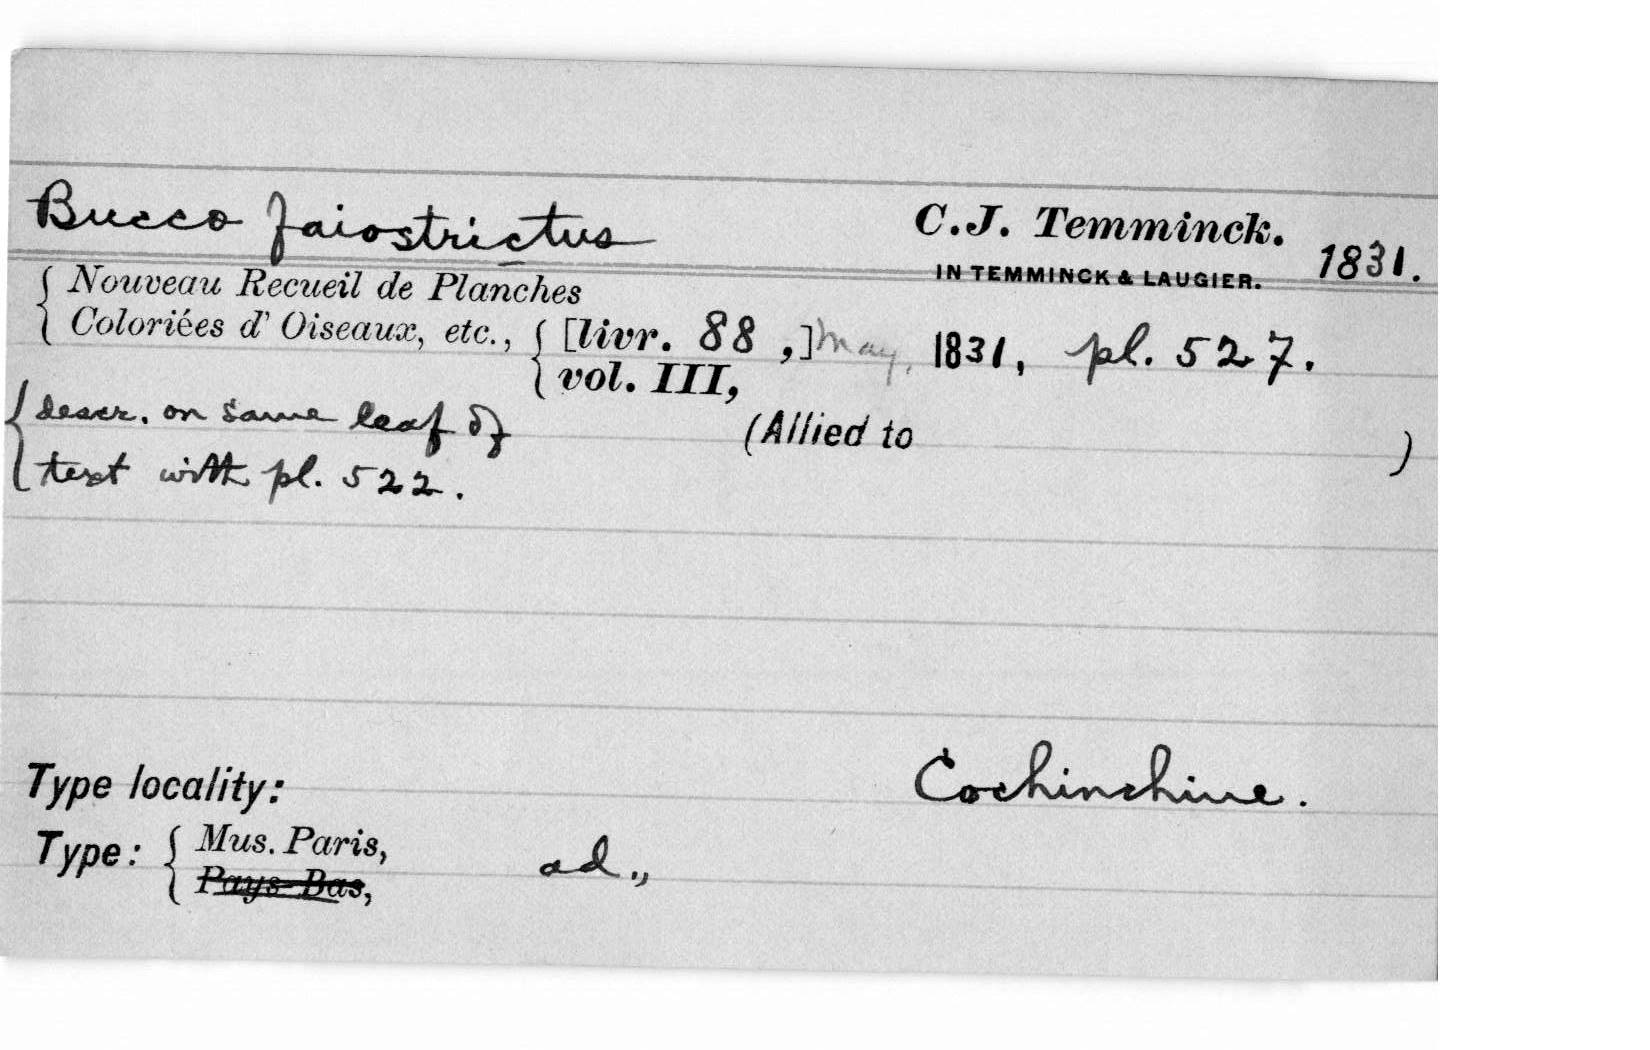 Bucco faiostrictus C.J. Temminck. 1831.
IN TEMMINCK & LAUGIER.
{ Nouveau Recueil de Planches
Coloriées d' Oiseaux, etc., { [livr. 88 ,] May, 1831, pl. 527.
vol. III,
{ descr. on same leaf of (Allied to )
text with pl. 522.
Type locality: Cochinchine.
Type: { Mus. Paris, ad.,,
Pays-Bas,